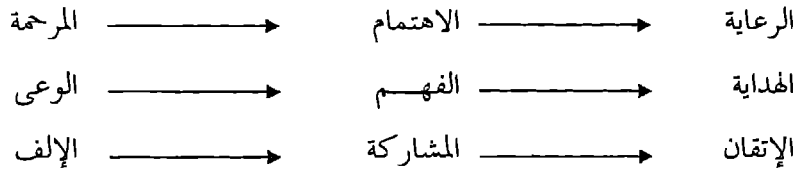 المرحمة ← الاهتمام ← الرعاية
الوعى ← الفهم ← الهداية
الإلف ← المشاركة ← الإتقان